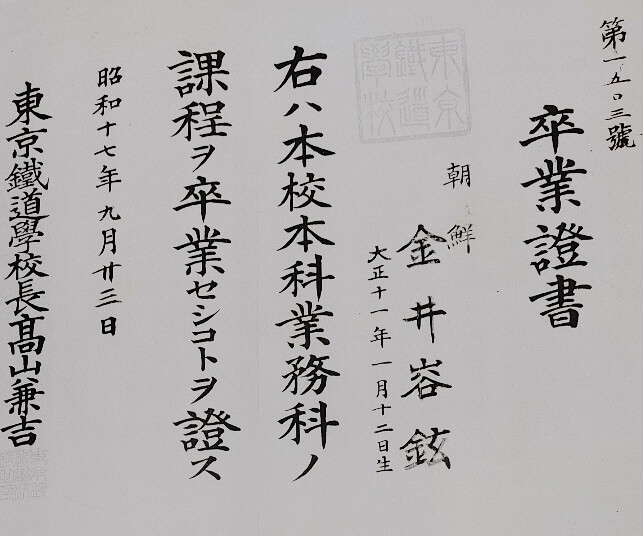 第一五〇三號
卒業證書
朝鮮
金井容鉉
大正十一年一月十二日生
東京鐵道學校
右ハ本校本科業務科ノ
課程ヲ卒業セシコトヲ證ス
昭和十七年九月廿三日
東京鐵道學校長髙山兼吉